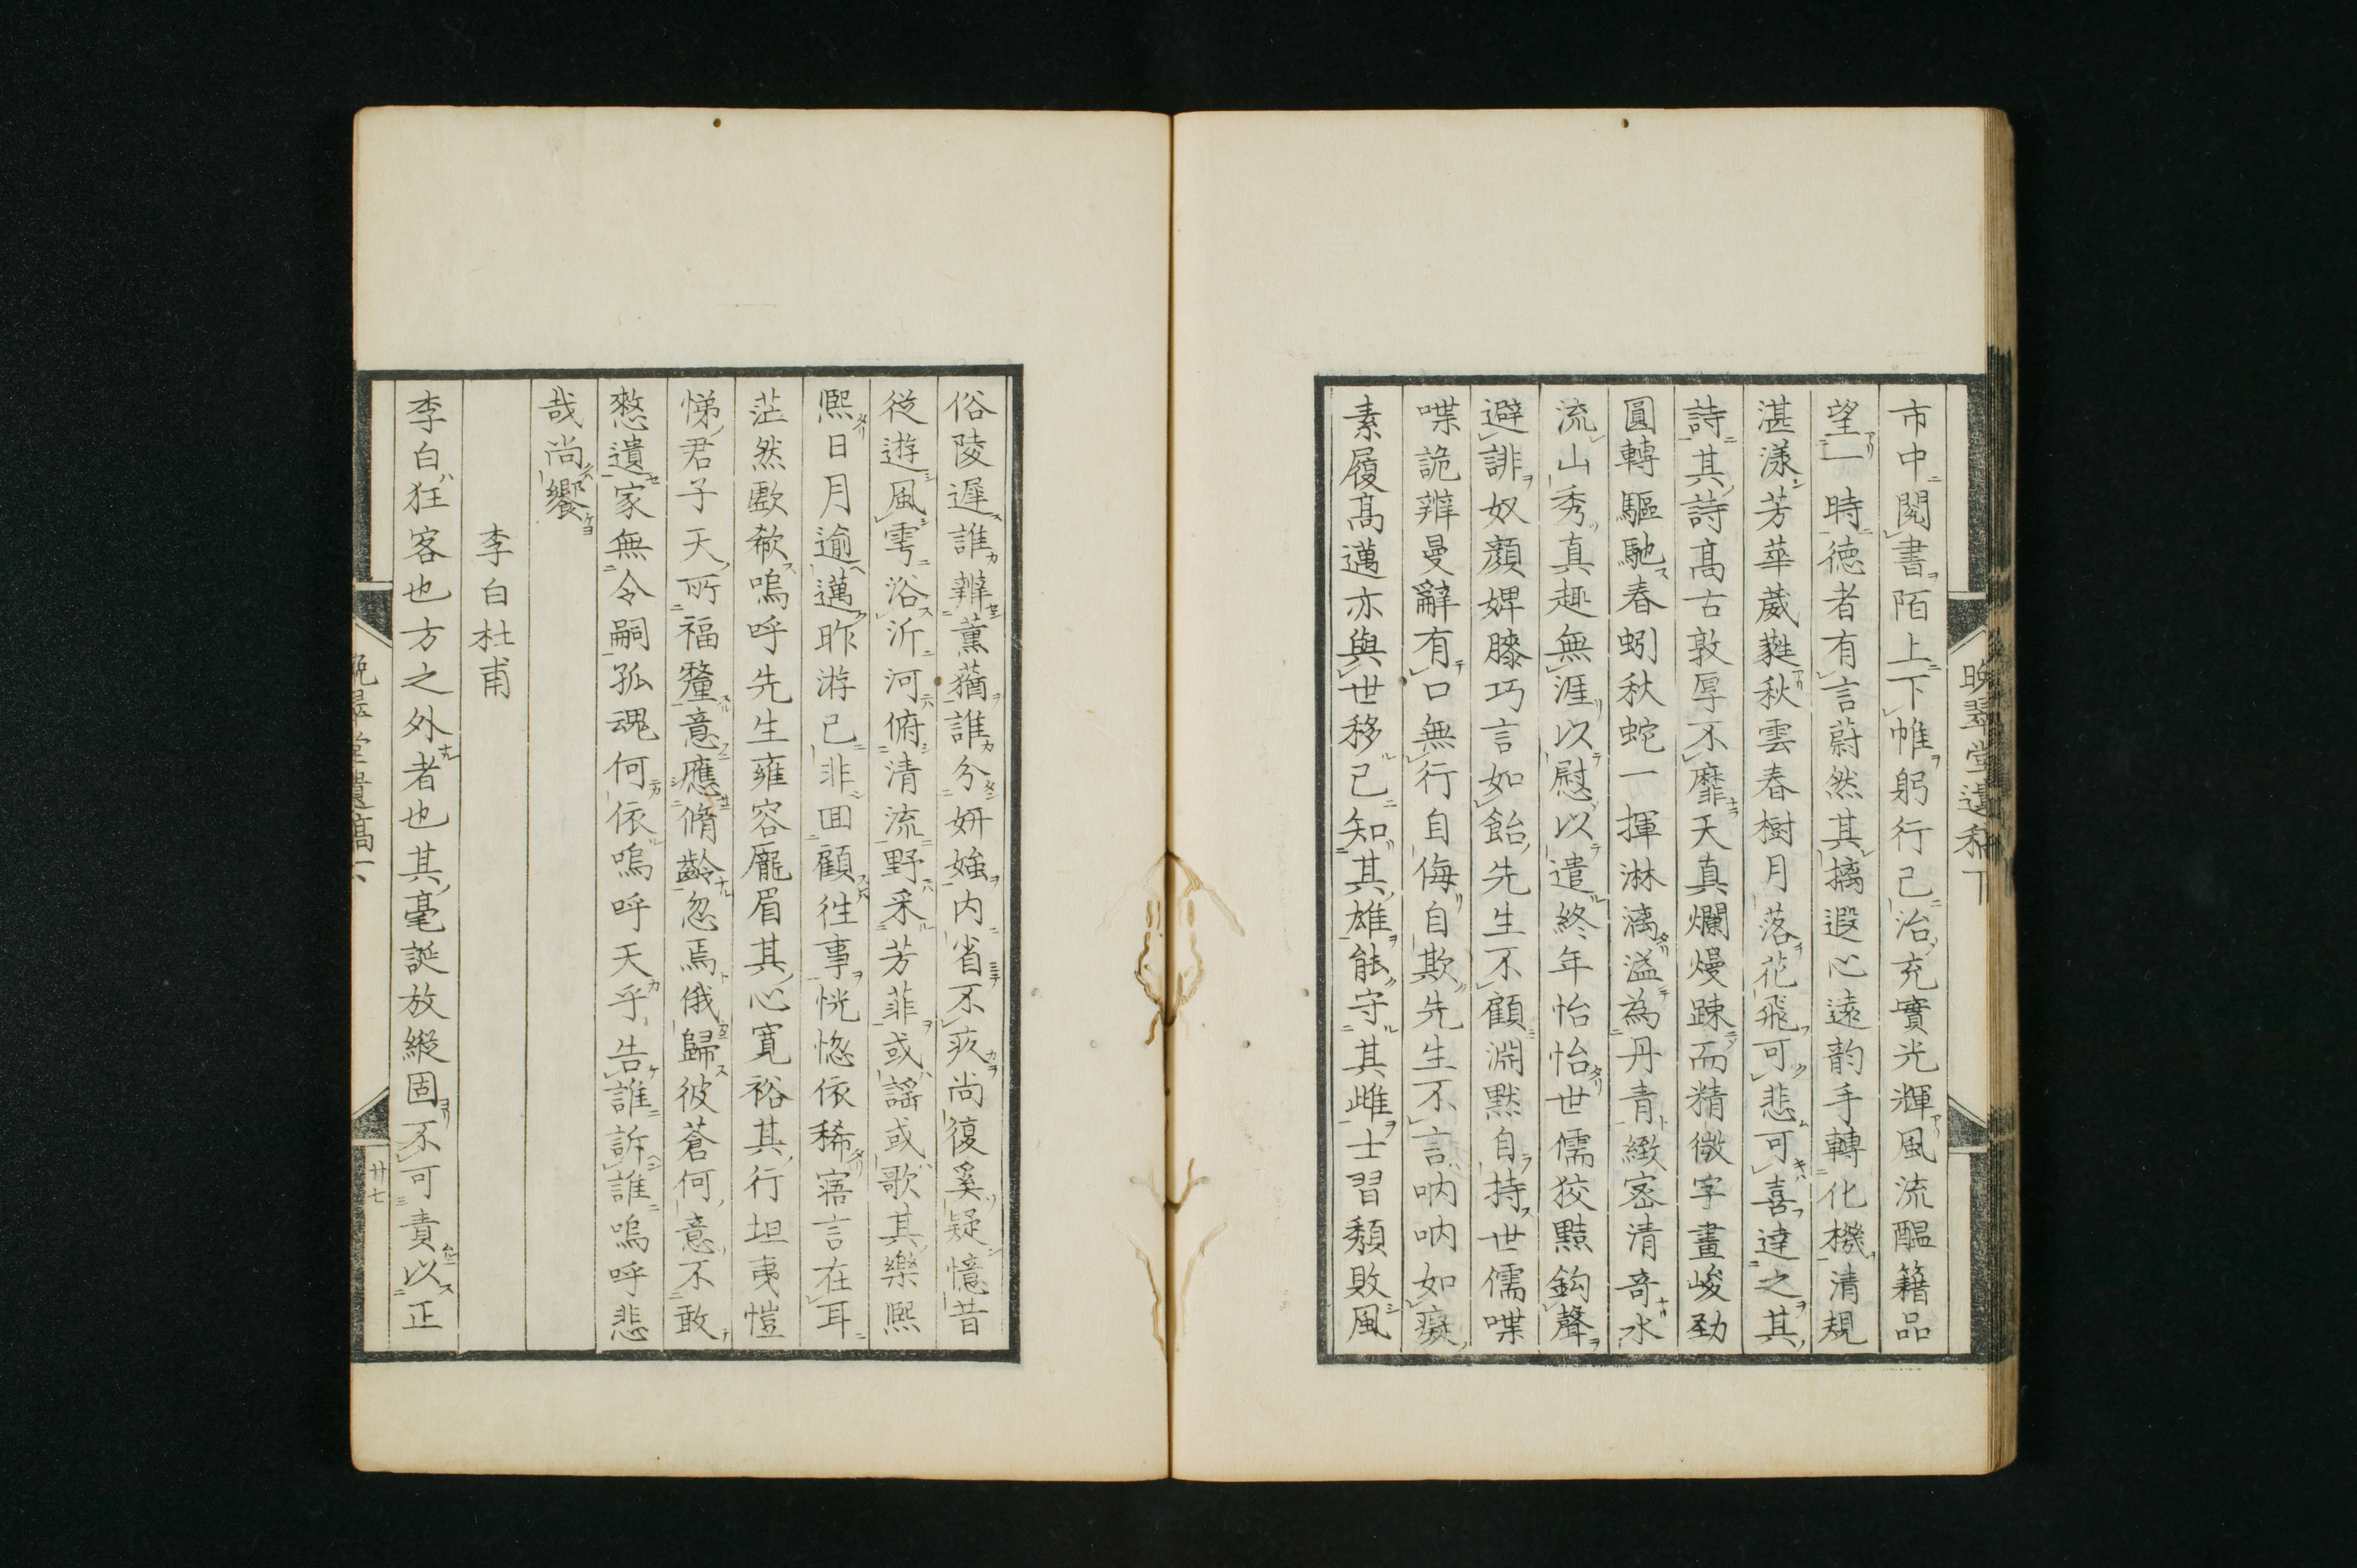 市中閲書陌上下帷躬行己治充實光輝風流醞籍品
望一時徳者有言蔚然其摛遐心遠韵手轉化機清規
湛漾芳華葳蕤秋雲春樹月落花飛可悲可喜達之其
詩其詩高古敦厚不靡天真爛熳踈而精微字畫峻勁
圓轉驅馳春蚓秋蛇一揮淋漓溢為丹青緻密清奇水
流山秀真趣無涯以慰以遣終年怡怡世儒狡黠鈎聲
避誹奴顔婢膝巧言如飴先生不顧淵黙自持世儒喋
喋詭辨曼辭有口無行自侮自欺先生不言吶吶如癡
素履高邁亦與世移己知其雄能守其雌士習頽敗風
俗陵遲誰辨薫蕕誰分妍媸内省不疚尚復奚疑憶昔
從遊風雩浴沂河俯清流野采芳菲或謡或歌其樂熙
熙日月逾邁昨游已非囬顧徃事恍惚依稀寤言在耳
茫然歔欷嗚呼先生雍容龐眉其心寛裕其行坦夷愷
悌君子天所福釐意應脩齡忽焉俄歸彼蒼何意不敢
憖遺家無令嗣孤魂何依嗚呼天乎告誰訴誰嗚呼悲
哉尚饗
李白杜甫
李白狂客也方之外者也其毫誕放縱固不可責以正
晩翠堂遺稿下
廿七